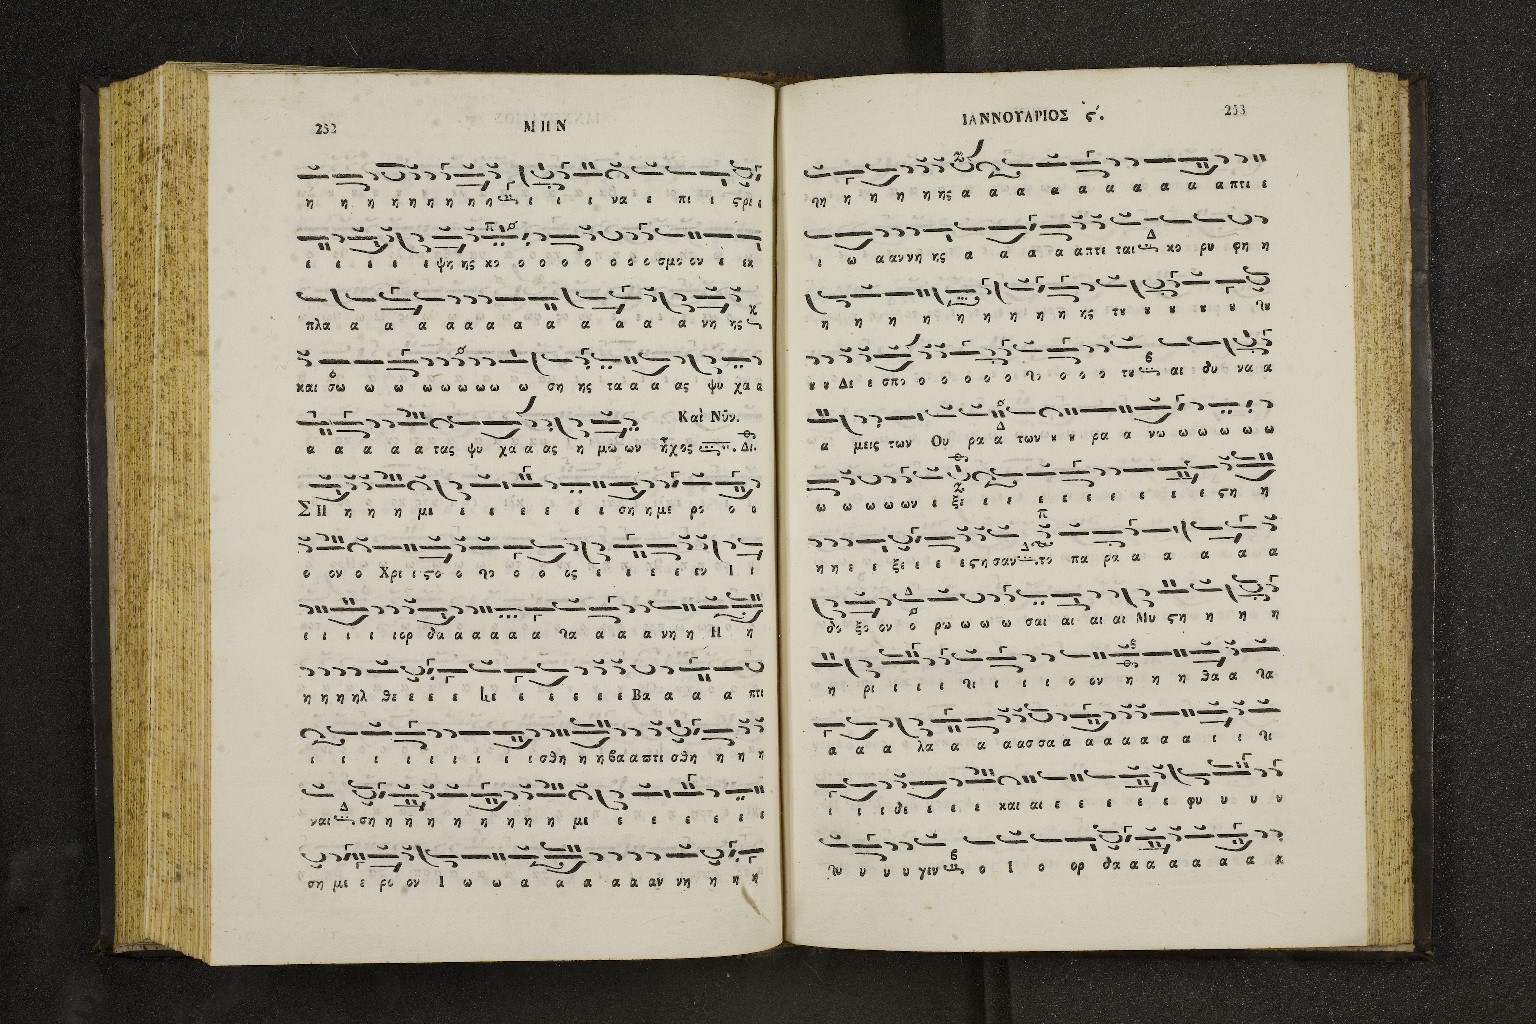 252
ΜΗΝ
η η η η η η η η η ι ι ι να ε πι ι ςρι ι
ε ε ε ε ε ψης ης κο ο ο ο ο ο ο ο σμο ον ε εκ
πλα α α α α α α α α α α α νη ης
και σω ω ω ω ω ω ω ω ω ση ης τα α α ας ψυ χα α
α α α α α τας ψυ χα α ας η μω ων ἦχος Δι.
Καὶ Νῦν.
ΣΗ η η η με ε ε ε ε ε ε ση η με ρο ο ο
ο ον ο Χρι ι ςο ο το ο ο ος ε ε ε ε εν Ι ι
ι ι ι ι ιορ δα α α α α α τα α α α νη η Η η
η η η ηλ θε ε ε ε ε ε ε ε ε Βα α α α πτι
ι ι ι ι ι ι ι ι ι σθη η η βα α πτι σθη η η η
ναι ση η η η η η η η η με ε ε ε ε ε ε
ση με ε ρο ον Ι ω ω α α α α α αν νη η η η
ΙΑΝΝΟΥΑΡΙΟΣ ς΄.
253
τη η η η η ης α α α α α α α α α α πτι ε
ι ω α αν νη ης α α α α α πτε ται κο ρυ φη η
η η η η η η η η η ης τυ υ υ υ υ τυ
υ υ Δε ε σπο ο ο ο ο ο ο το ο ο ο τυ αι δυ να α
α μεις των Ου ρα α των υ υ ρα α νω ω ω ω ω ω
ω ω ω ω ων ε ξε ε ε ε ε ε ε ε ε ςη η
η η ε ε ξε ε ε ε ςη σαν το πα ρα α α α α α
δο ξο ον ο ρω ω ω ω σαι αι αι αι Μυ ςη η η η
η ρι ι ι ι τι ι ι ι ο ον η η η θα α τα
α α α λα α α α ασ σα α α α α α α α ι ι τι
ι ι ι δε ε ε ε και αι ε ε ε ε ε φυ υ υ υ
τυ υ υ υ γεν ο Ι ο ορ δα α α α α α α α